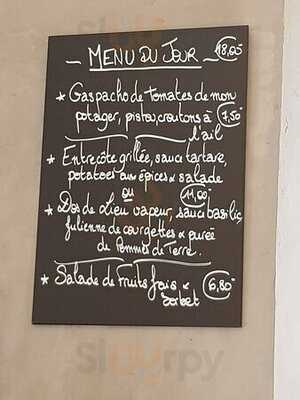 - MENU DU JOUR - 18,00
* Gaspacho de tomates de mon
potager, pistou, croutons à 7,50
l'ail
* Entrecôte grillée, sauce tartare,
potatoes aux épices & salade
ou 11,00
* Dos de Lieu vapeur, sauce basilic,
julienne de courgettes & purée
de Pommes de Terre.
* Salade de fruits frais &
sorbet 6,80